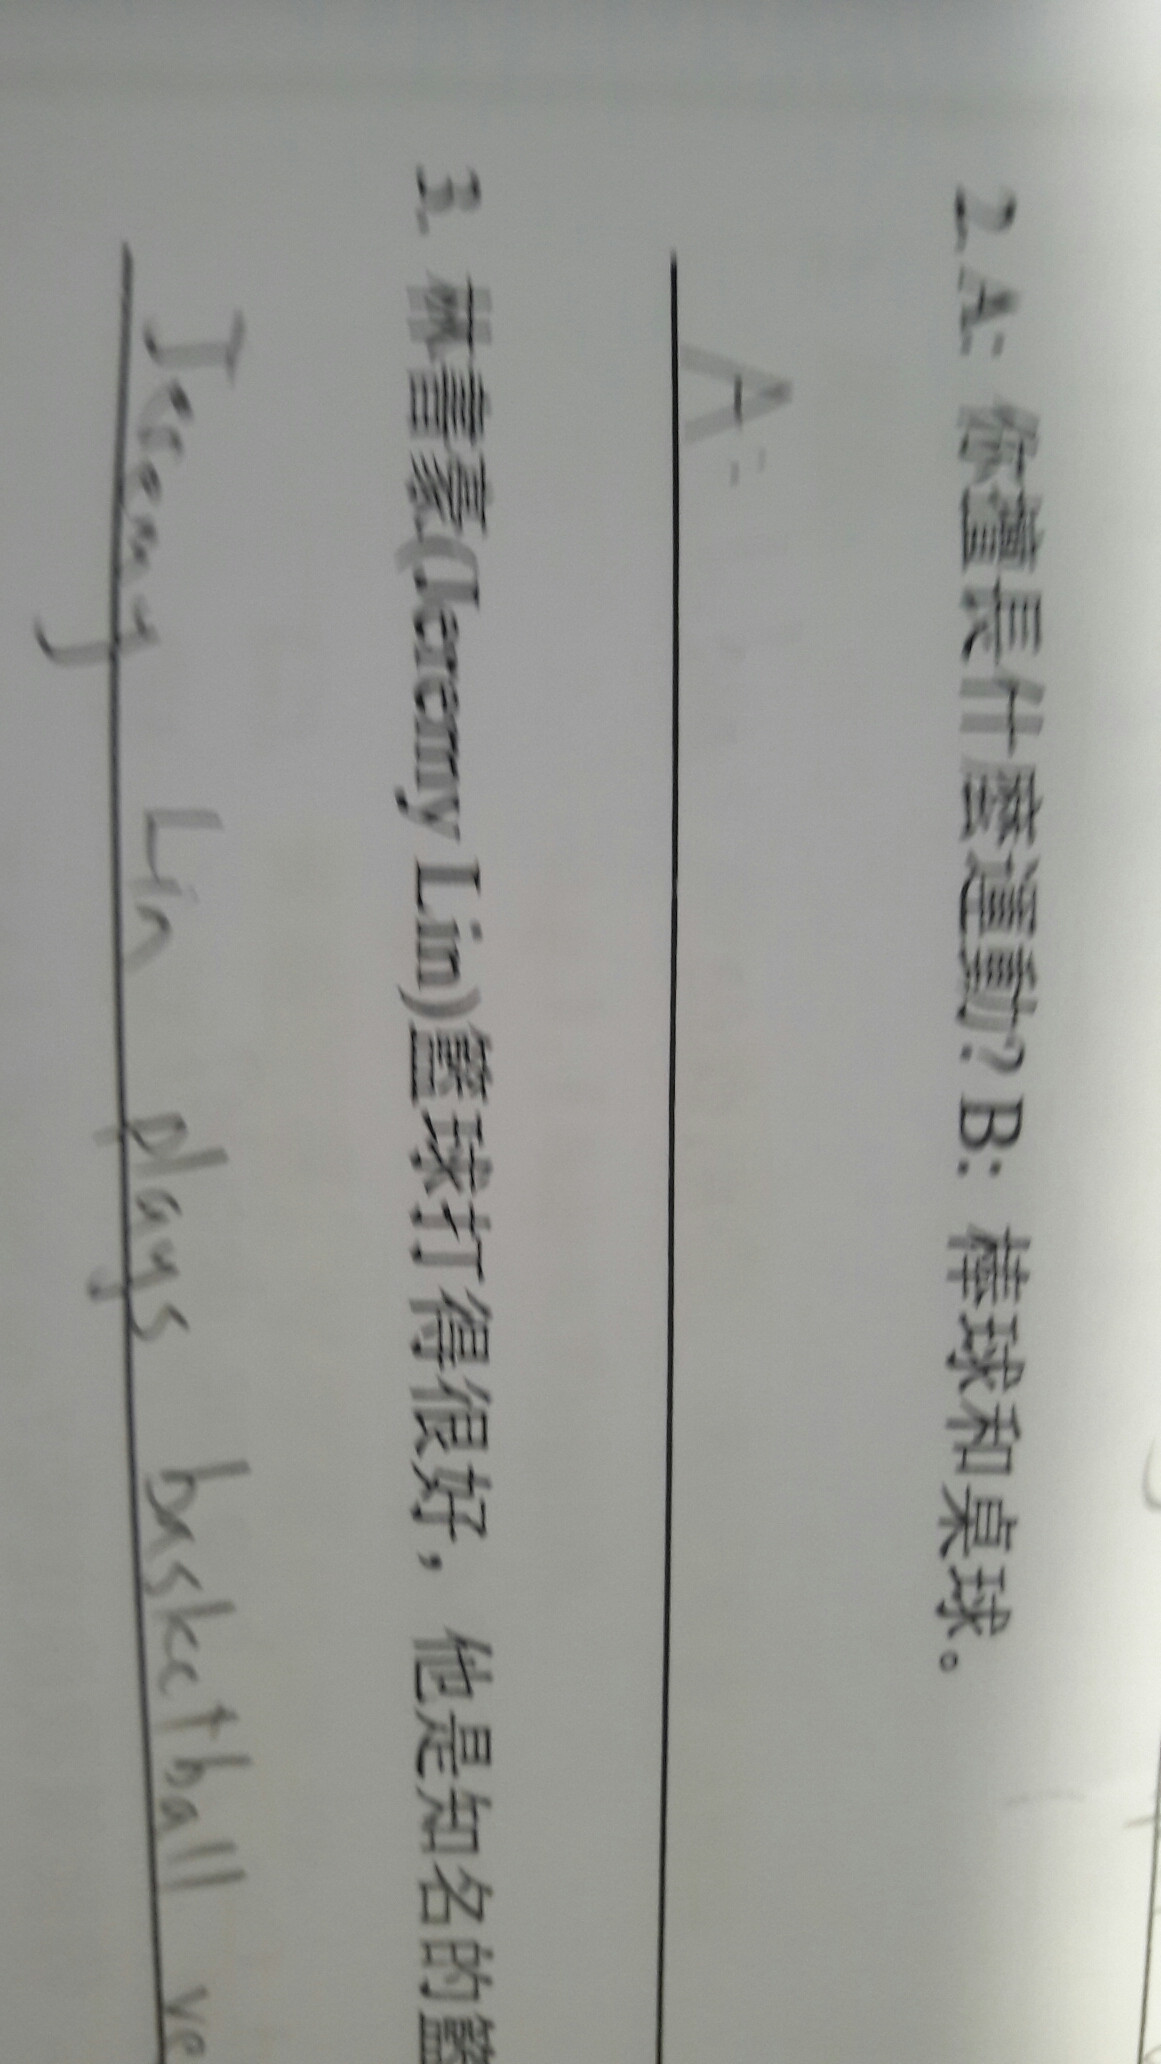 2. A: 你擅長什麼運動? B: 棒球和桌球。
A:
3. 林書豪(Jeremy Lin)籃球打得很好，他是知名的籃
Jeremy Lin plays basketball ve